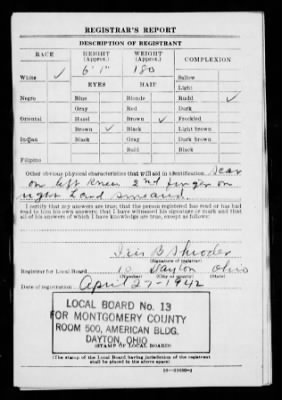 REGISTRAR'S REPORT
DESCRIPTION OF REGISTRANT
RACE
HEIGHT
(Approx.)
WEIGHT
(Approx.)
COMPLEXION
White ✓
6' 1"
180
Sallow
EYES
HAIR
Light
Negro
Blue
Blonde
Ruddy ✓
Gray
Red
Dark
Oriental
Hazel
Brown ✓
Freckled
Brown ✓
Black
Light brown
Indian
Black
Gray
Dark brown
Bald
Black
Filipino
Other obvious physical characteristics that will aid in identification Scar
on left knee 2nd finger on
right hand
I certify that my answers are true; that the person registered has read or has had
read to him his own answers; that I have witnessed his signature or mark and that
all of his answers of which I have knowledge are true, except as follows:
Iris B. Rhodes
(Signature of registrar)
Registrar for Local Board 10 Dayton Ohio
(Number) (City or county) (State)
Date of registration April 27-1942
LOCAL BOARD No. 13
FOR MONTGOMERY COUNTY
ROOM 500, AMERICAN BLDG.
DAYTON, OHIO
(STAMP OF LOCAL BOARD)
(The stamp of the Local Board having jurisdiction of the registrant
shall be placed in the above space)